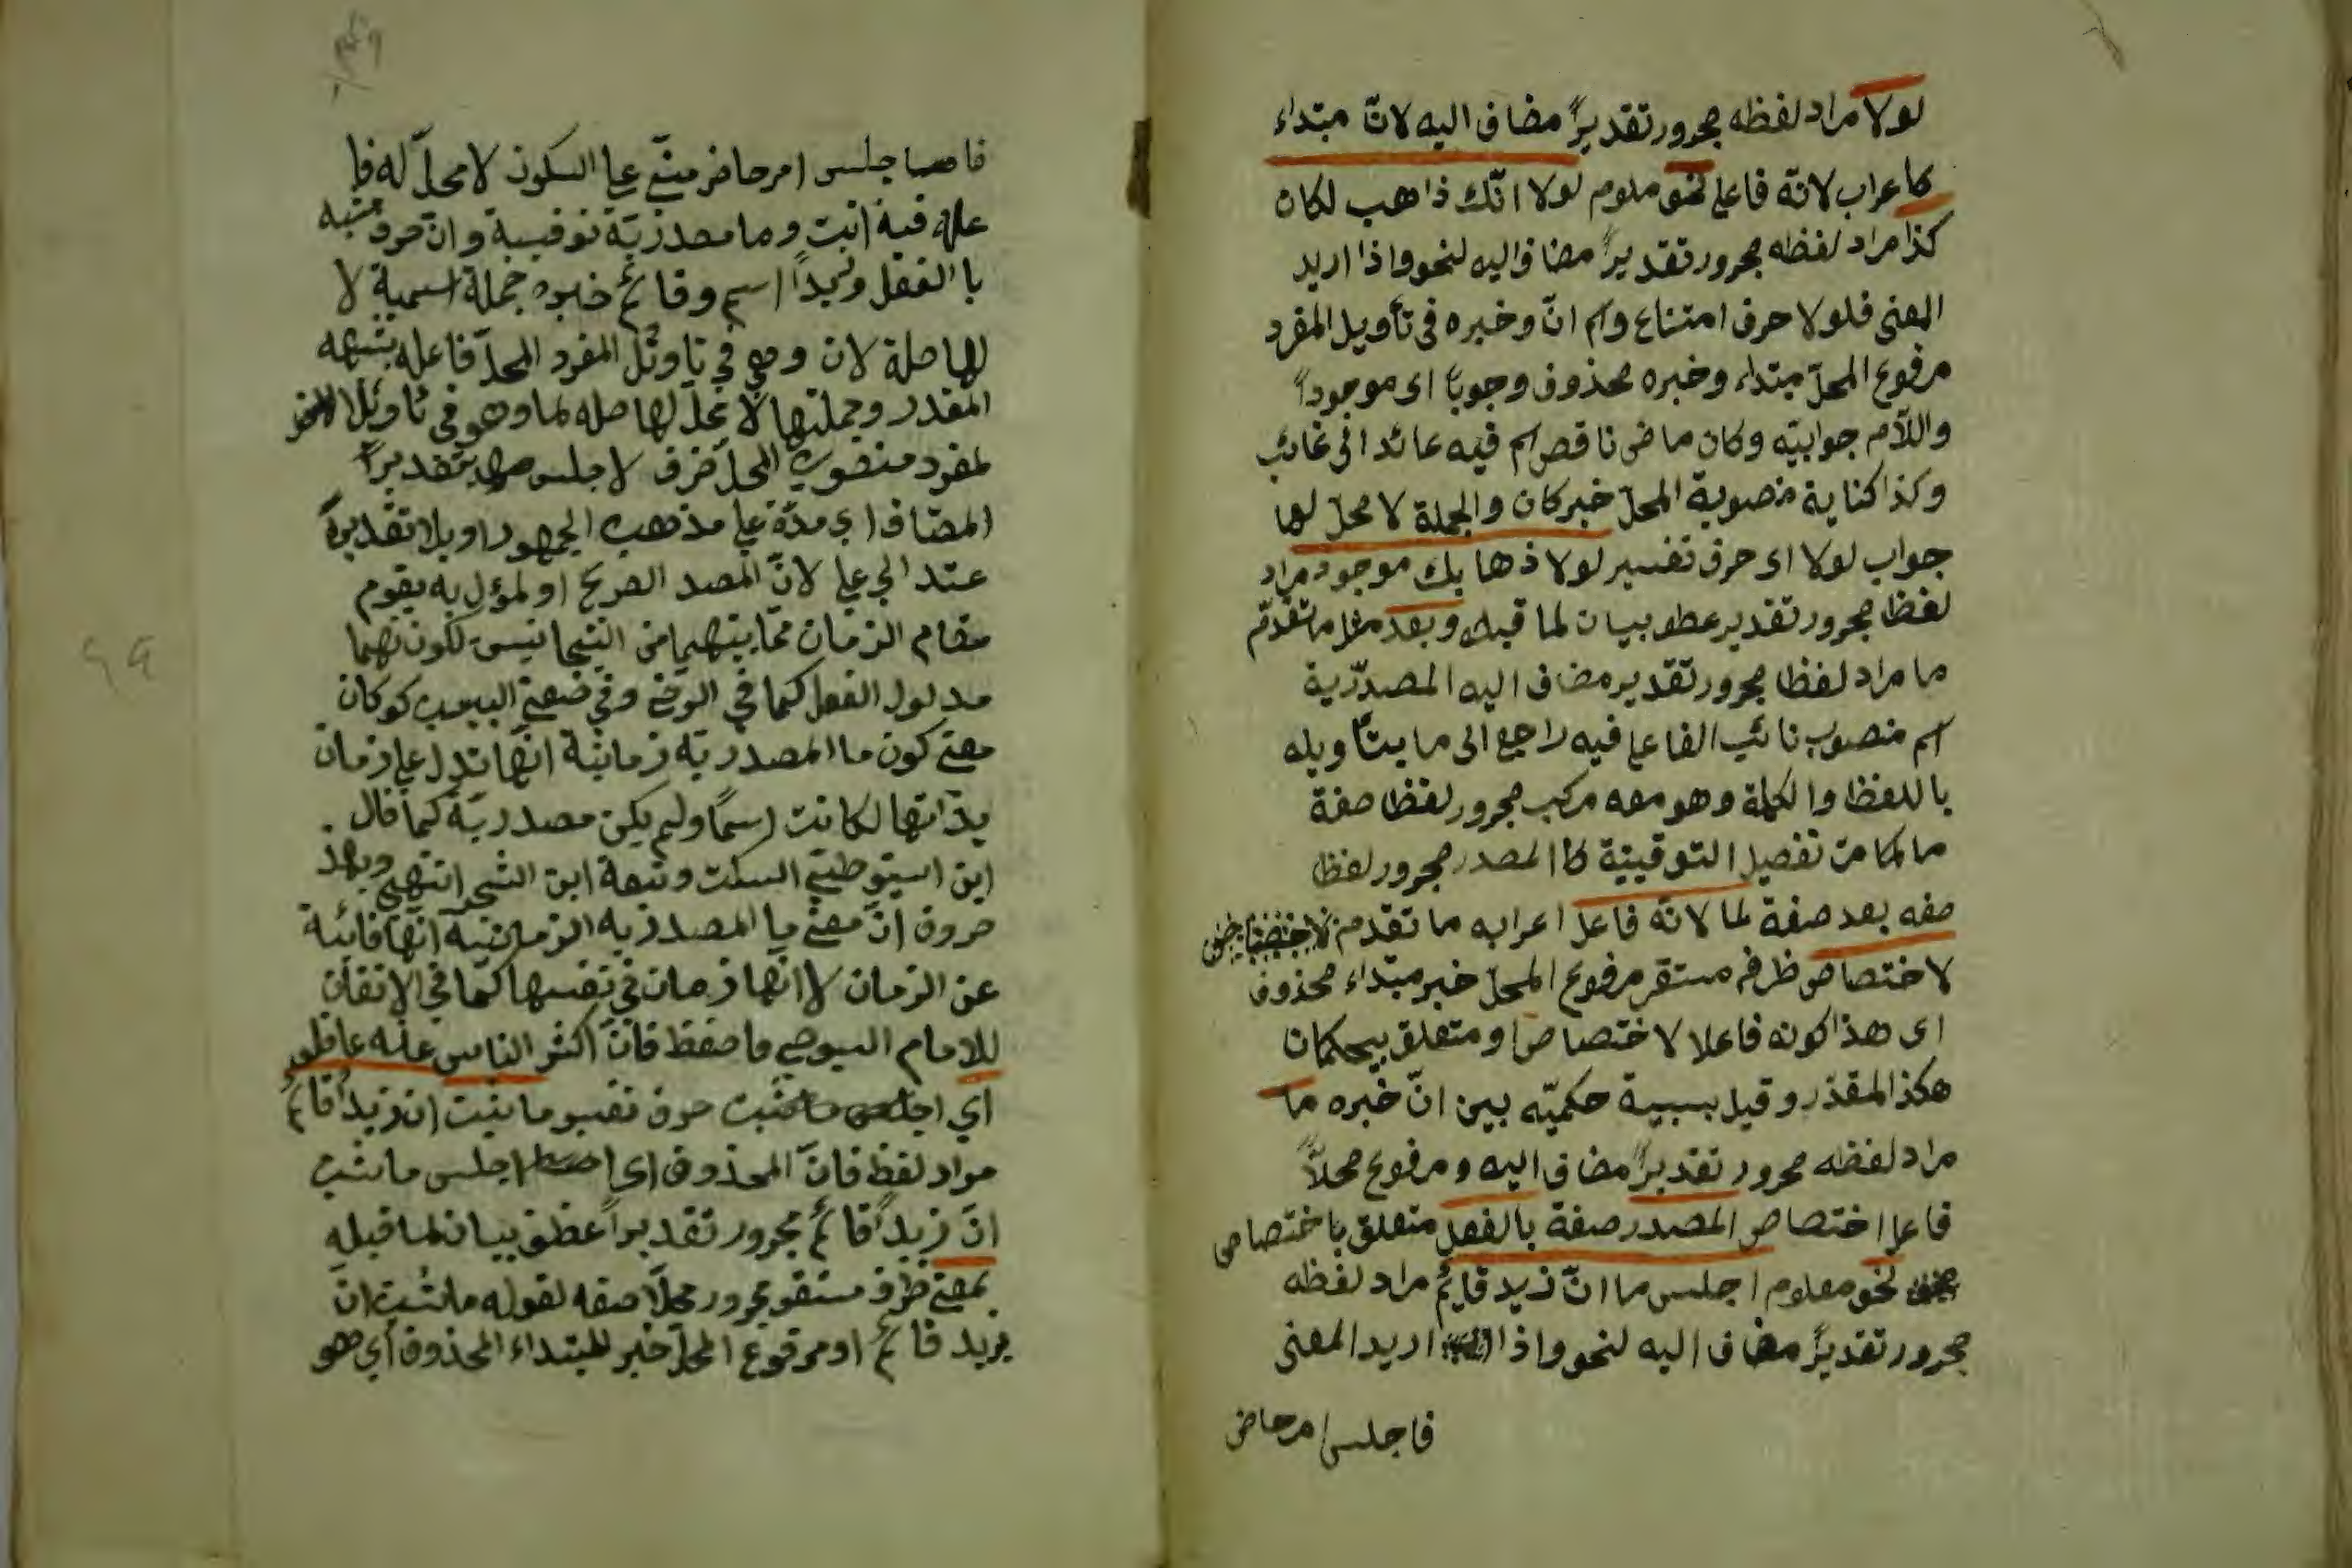 لولا مراد لفظه مجرور تقديراً مضاف اليه لانّ مبتداء
كاعراب لانّه فاعل نحو معلوم لولا انّك ذاهب لكان
كذا مراد لفظه مجرور تقديراً مضاف اليه لنحو واذا اريد
المعنى فلولا حرف امتناع واسم انّ وخبره فى تأويل المفرد
مرفوع المحلّ مبتداء وخبره محذوف وجوباً اى موجوداً
واللّام جوابيّه وكان ماضى ناقص اسم فيه عائد الى غائب
وكذا كناية منصوبة المحلّ خبر كان والجملة لا محلّ لها
جواب لولا اى حرف تفسير لولا ذهابك موجود مراد
لفظا مجرور تقدير عطف بيان لما قبله وبعد مثل ما تقدّم
ما مراد لفظا مجرور تقدير مضاف اليه المصدّرية
اسم منصوب نائب الفاعل فيه راجع الى ما بتأويله
باللفظ والكلمة وهو معه مركب مجرور لفظا صفة
ما لما من تفصيل التوقيتية كا المصدر مجرور لفظا
صفه بعد صفة لما لانّه فاعل اعرابه ما تقدم
لاختصاص ظرف مستقر مرفوع المحلّ خبر مبتداء محذوف
اى هذا كونه فاعلا لاختصاص او متعلق بيحكمان
هكذا المقدّر وقيل بسببية حكميّه بين انّ خبره ما
مراد لفظه مجرور تقديراً مضاف اليه ومرفوع محلاً
فاعل اختصاص المصدر صفة بالفعل متعلق باختصاص
نحو معلوم اجلس ما انّ زيد قايم مراد لفظه
مجرور تقديراً مضاف اليه لنحو واذا اريد المعنى
فاجلس امر حاضر
فا جلس امر حاضر مبنّى على السكون لا محلّ له فا
عله فيه انت وما مصدريّة توقيتية وانّ حرف مشبه
با الفعل وزيداً اسم وقائمٌ خبره جملة اسمية لا
لها صلة لان وهي في تاويل المفرد المحلّ فاعله
المقدر وجملتها لا محلّ لها صله لما وهو في تاويل
لمفرد منصوب المحلّ ظرف لاجلس بتقدير
المضاف اي مدّة على مذهب الجمهور او بلا تقديره
عند ابي علي لانّ المصد الصريح او لمؤل به يقوم
مقام الزمان ممّا بينهما من التجانس لكونهما
مدلول الفعل كما في الرضي وفي
معنى كون ما المصدريّة زمانية انّها تدل على زمان
بذاتها لكانت اسمًا ولم يكن مصدريّة كما قال
ابن السكت وتبعه ابن الشجر انتهى وبهذ
حروف انّ معنى ما المصدريه الزمانية انّها نائبة
عن الزمان لا انّها زمان في نفسها كما في الاتقان
للامام السيوطي فاحفظ فانّ اكثر الناس عنه غافلون
اي اجلس ما ثبت حرف تفسير ما يثبت ان زيداً قائمٌ
مراد لفظ فانّ المحذوف اى اجلس ما يثبت
انّ زيداً قائمٌ مجرور تقديراً عطف بيان لما قبله
بمعنى ظرف مستقر مجرور محلّا صفه لقوله ما يثبت انّ
يزيد قائمٌ او مرفوع المحلّ خبر للمبتداء المحذوف اي هو